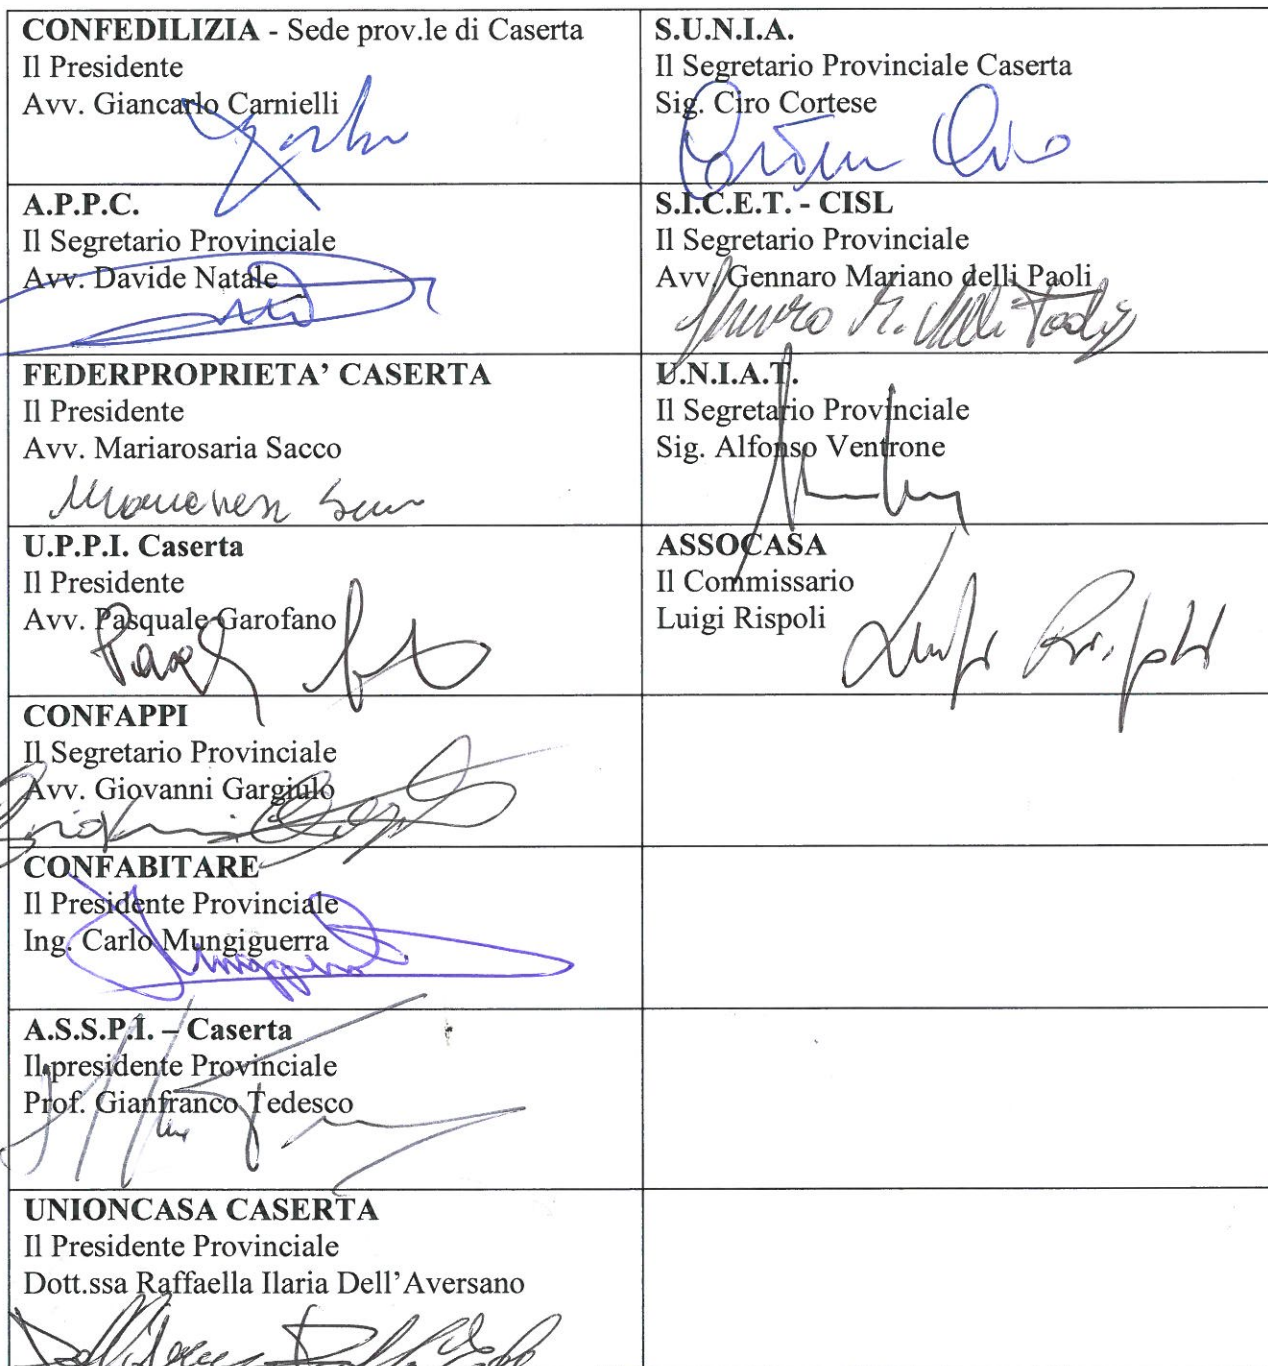 CONFEDILIZIA - Sede prov.le di Caserta
Il Presidente
Avv. Giancarlo Carnielli
S.U.N.I.A.
Il Segretario Provinciale Caserta
Sig. Ciro Cortese
A.P.P.C.
Il Segretario Provinciale
Avv. Davide Natale
S.I.C.E.T. - CISL
Il Segretario Provinciale
Avv. Gennaro Mariano delli Paoli
FEDERPROPRIETA' CASERTA
Il Presidente
Avv. Mariarosaria Sacco
U.N.I.A.T.
Il Segretario Provinciale
Sig. Alfonso Ventrone
U.P.P.I. Caserta
Il Presidente
Avv. Pasquale Garofano
ASSOCASA
Il Commissario
Luigi Rispoli
Luigi Rispoli
CONFAPPI
Il Segretario Provinciale
Avv. Giovanni Gargiulo
CONFABITARE
Il Presidente Provinciale
Ing. Carlo Mungiguerra
A.S.S.P.I. – Caserta
Il presidente Provinciale
Prof. Gianfranco Tedesco
UNIONCASA CASERTA
Il Presidente Provinciale
Dott.ssa Raffaella Ilaria Dell'Aversano